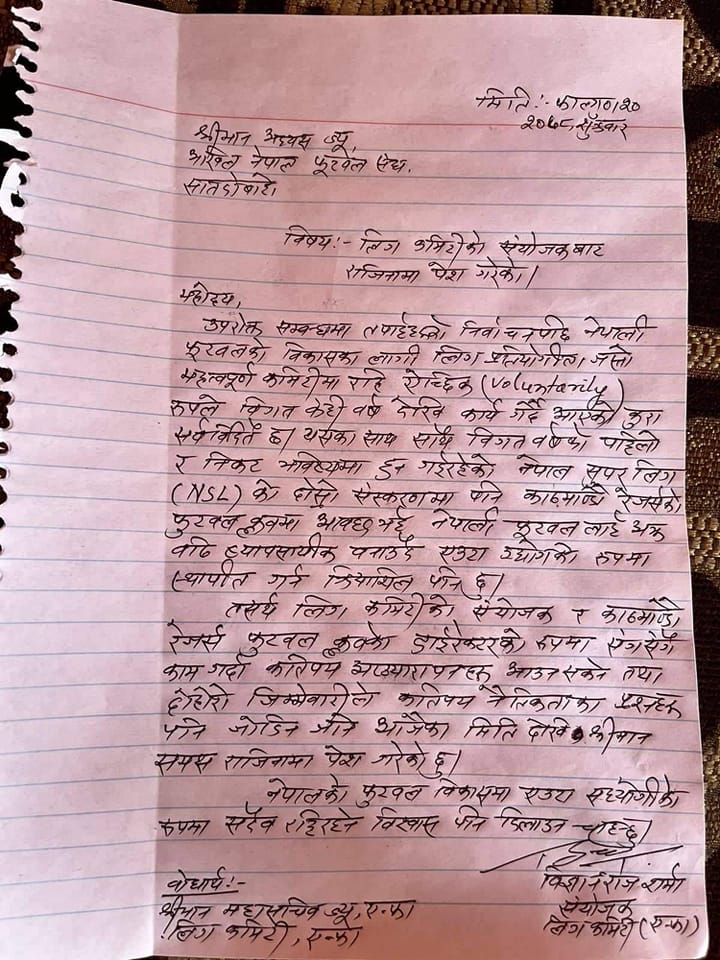 मिति:- फाल्गुण २०
२०७८, शुक्रबार
श्रीमान अध्यक्ष ज्यू,
अखिल नेपाल फुटबल संघ.
सातदोबाटो।
विषय:- लिग कमिटीको संयोजकबाट
राजिनामा पेश गरेको।
महोदय,
उपरोक्त सम्बन्धमा तपाईहरुको निर्वाचनपछि नेपाली
फुटबलको विकासका लागी लिग प्रतियोगीता जस्तो
महत्वपूर्ण कमिटीमा रही ऐच्छिक (Voluntarily)
रुपले विगत केही वर्ष देखि कार्य गर्दै आएको कुरा
सर्वविदितै छ। यसका साथ साथै विगत वर्षका पहिलो
र निकट भविष्यमा हुन गईरहेको नेपाल सुपर लिग
(NSL) को दोस्रो संस्करणमा पनि काठमाण्डौं रेजर्सको
फुटबल क्लबमा आबद्ध भई नेपाली फुटबल लाई अझ
बढि व्यापसायीक बनाउदै एउटा उद्योगको रुपमा
स्थापीत गर्न क्रियासिल पनि छु।
तसर्थ लिग कमिटीको संयोजक र काठमाण्डौं
रेजर्स फुटबल क्लबको डाईरेक्टरको रुपमा संगसंगै
काम गर्दा कतिपय अप्ठ्यारापनहरु आउन सक्ने तथा
दोहोरो जिम्मेवारीले कतिपय नैतिकताका प्रश्नहरु
पनि जोडिने आजैका मिति देखि श्रीमान
समक्ष राजिनामा पेश गरेको छु।
नेपालको फुटबल विकासमा एउटा सहयोगीको
रुपमा सदैव रहिरहने विश्वास पनि दिलाउन चाहन्छु।
बोधार्थ:-
श्रीमान महासचिव ज्यू, एन्फा
लिग कमिटी, एन्फा
विज्ञानराज शर्मा
संयोजक
लिग कमिटी (एन्फा)